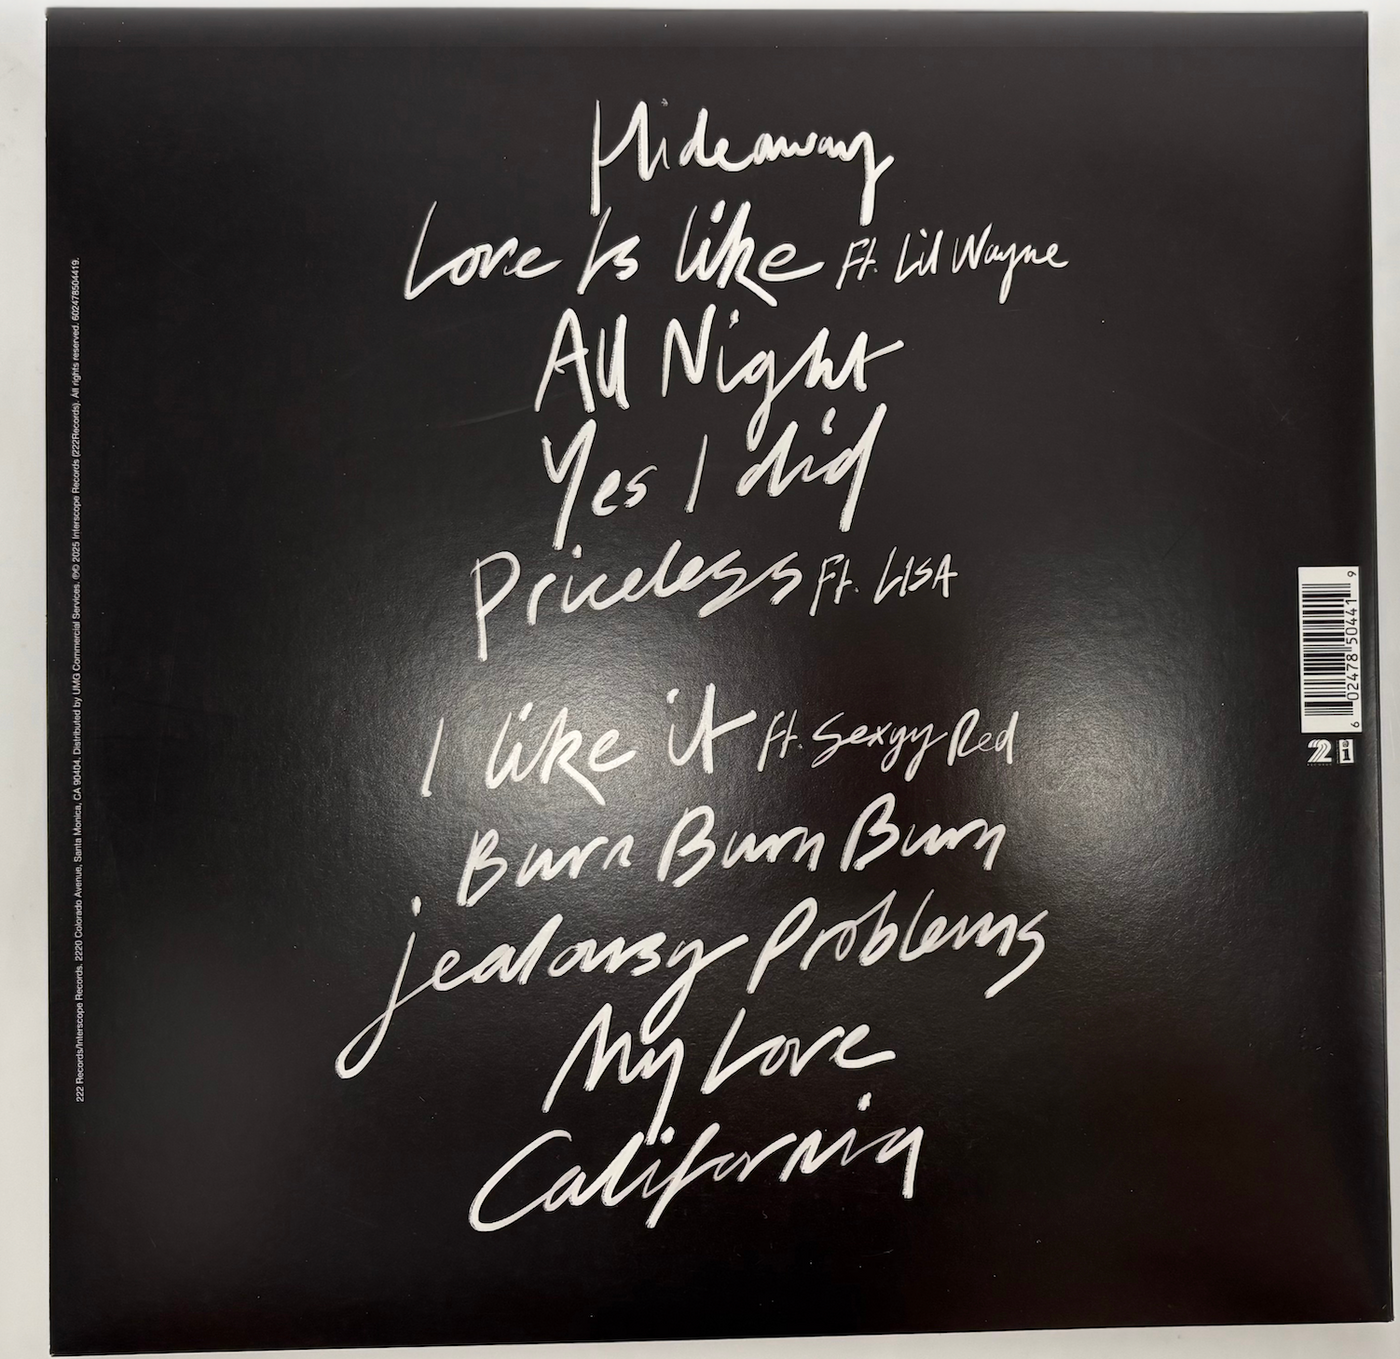 Hideaway
Love Is like Ft. Lil Wayne
All Night
Yes I did
Priceless Ft. LISA
I like it ft. Sexyy Red
Burn Burn Burn
jealousy Problems
My Love
California
222 Records/Interscope Records, 2220 Colorado Avenue, Santa Monica, CA 90404. Distributed by UMG Commercial Services. ℗© 2025 Interscope Records (222Records). All rights reserved. 602478504419.
6 02478 50441 9
222
i